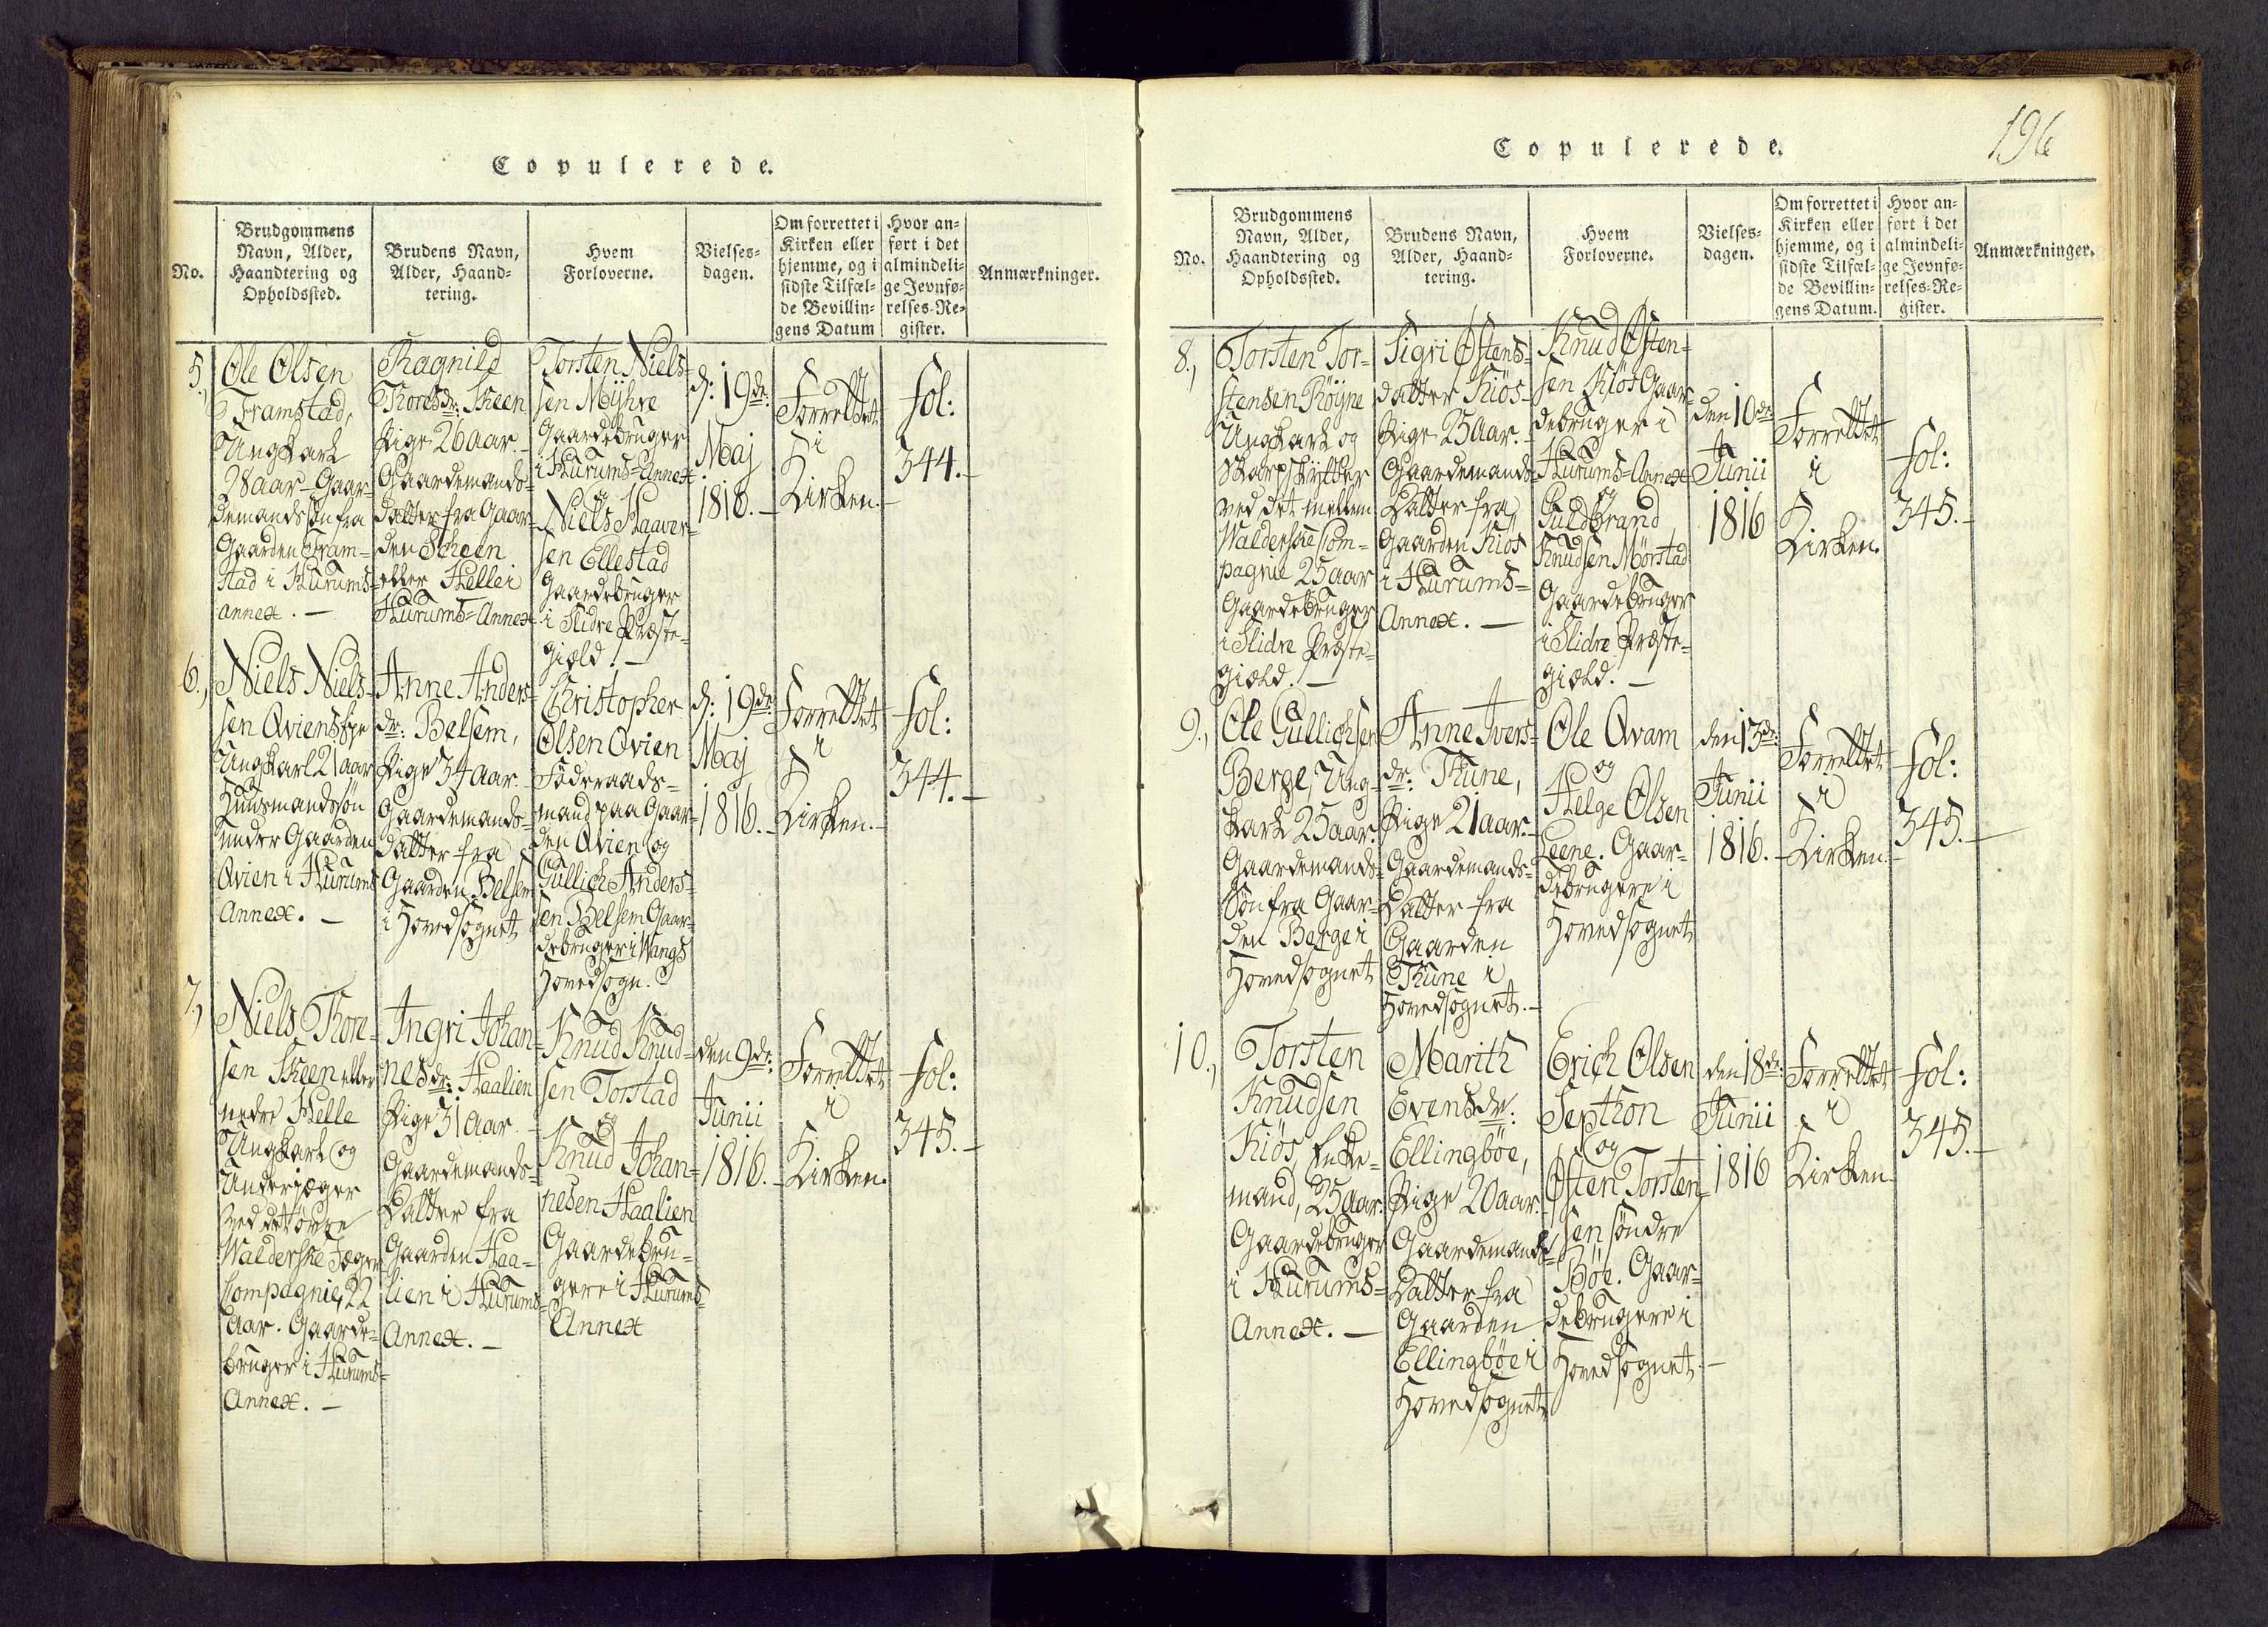 Copulerede.
No.
Brudgommens
Navn, Alder,
Haandtering og
Opholdssted.
Brudens Navn,
Alder, Haand-
tering.
Hvem
Forloverne.
Vielses-
dagen.
Om forrettet i
Kirken eller
hjemme, og i
sidste Tilfæl-
de Bevillin-
gens Datum
Hvor an-
ført i det
almindeli-
ge Jevnfø-
relses-Re-
gister.
Anmærkninger.
5.,
Ole Olsen
Framstad,
Ungkarl
28 aar Gaar-
demands søn fra
Gaarden Fram-
stad i Hurums-
annex. —
Ragnild
Thoresdr: Skeen
Pige 26 aar. -
Gaardemands-
datter fra Gaar-
den Scheen
eller Helle i
Hurums-Annex
Torsten Niels-
sen Mÿhre
Gaardebruger
i Hurums-Annex
og
Niels Haaver-
sen Ellestad
Gaardebruger
i Slidre Præste-
giæld. —
d: 19de
Maj
1816. -
Forrettet
i
Kirken. -
fol:
344. -
6.,
Niels Niels-
sen Qviens eye
Ungkarl 21 aar
Huusmands søn
under Gaarden
Qvien i Hurums
Annex. —
Anne Anders-
dr: Belsem,
Pige 34 aar.
Gaardemands-
datter fra
Gaarden Belsem
i Hovedsognet
Christopher
Olsen Qvien
Föderaads-
mand paa Gaar-
den Qvien og
Gullich Anders-
sen Belsem Gaar-
debruger i Wangs
Hovedsogn.
d: 19de
Maj
1816. -
Forrettet
i
Kirken. -
fol:
344. -
7.,
Niels Thore-
sen Skeen eller
nedre Helle
Ungkarl og
Underjæger
ved det övre
Walderske Jæger
Compagnie, 22
Aar. Gaarde-
bruger i Hurums-
Annex. —
Ingri Johan-
nesdr: Haalien
Pige 31 Aar -
Gaardemands-
Datter fra
Gaarden Haa-
lien i Hurums-
Annex. —
Knud Knud-
sen Torstad
og
Knud Johan-
nesen Haalien
Gaardebru-
gere i Hurums-
Annex
den 9de:
Junii
1816. -
Forrettet
i
Kirken.
fol:
345. -
Copulerede.
196
No.
Brudgommens
Navn, Alder,
Haandtering og
Opholdssted.
Brudens Navn,
Alder, Haand-
tering.
Hvem
Forloverne.
Vielses-
dagen.
Om forrettet i
Kirken eller
hjemme, og i
sidste Tilfæl-
de Bevillin-
gens Datum.
Hvor an-
ført i det
almindeli-
ge Jevnfø-
relses-Re-
gister.
Anmærkninger.
8.,
Torsten Tor-
stensen Röyne
Ungkarl og
Skarpskÿtter
ved det mellem
Walderske Com-
pagnie 25 aar
Gaardebruger
i Slidre Præste-
giæld. —
Sigri Østens-
datter Kiös
Pige 25 Aar. -
Gaardemands-
Datter fra
Gaarden Kiös
i Hurums-
Annex. —
Knud Østen-
sen Kiös Gaar-
debruger i
Hurums-Annex
og
Guldbrand
Knudsen Mörstad
Gaardebruger
i Slidre Præste-
giæld. —
den 10de
Junii
1816
Forrettet
i
Kirken.
fol:
345. -
9.,
Ole Gullichsen
Berge, Ung-
karl 25 aar.
Gaardemands-
Søn fra Gaar-
den Berge i
Hovedsognet
Anne Ivers-
dr: Thune,
Pige 21 aar. -
Gaardemands-
Datter fra
Gaarden
Thune i
Hovedsognet. -
Ole Qvam
og
Helge Olsen
Leene. Gaar-
debrugere i
Hovedsognet
den 13de:
Junii
1816. -
Forrettet
i
Kirken. -
fol:
345. —
10.,
Torsten
Knudsen
Kiös, Enke-
mand, 25 aar.
Gaardebruger
i Hurums-
Annex. —
Marith
Evensdr:
Ellingböe,
Pige 20 aar.
Gaardemands-
Datter fra
Gaarden
Ellingböe i
Hovedsognet
Erich Olsen
Septhon
og
Østen Torsten-
sen söndre
Böe. Gaar-
debrugere i
Hovedsognet. —
den 18de:
Junii
1816
Forrettet
i
Kirken.
fol:
345. -